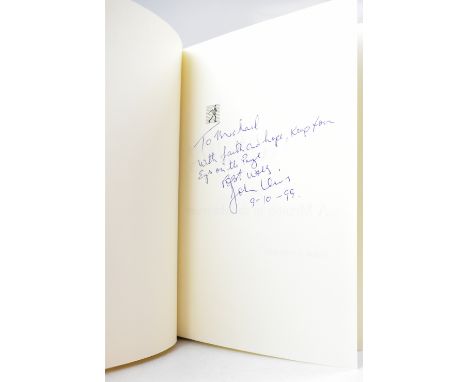 To Michael
With faith and hope, Keep your
Eyes on the Prize
Best Wishes.
John Lewis
9-10-99.